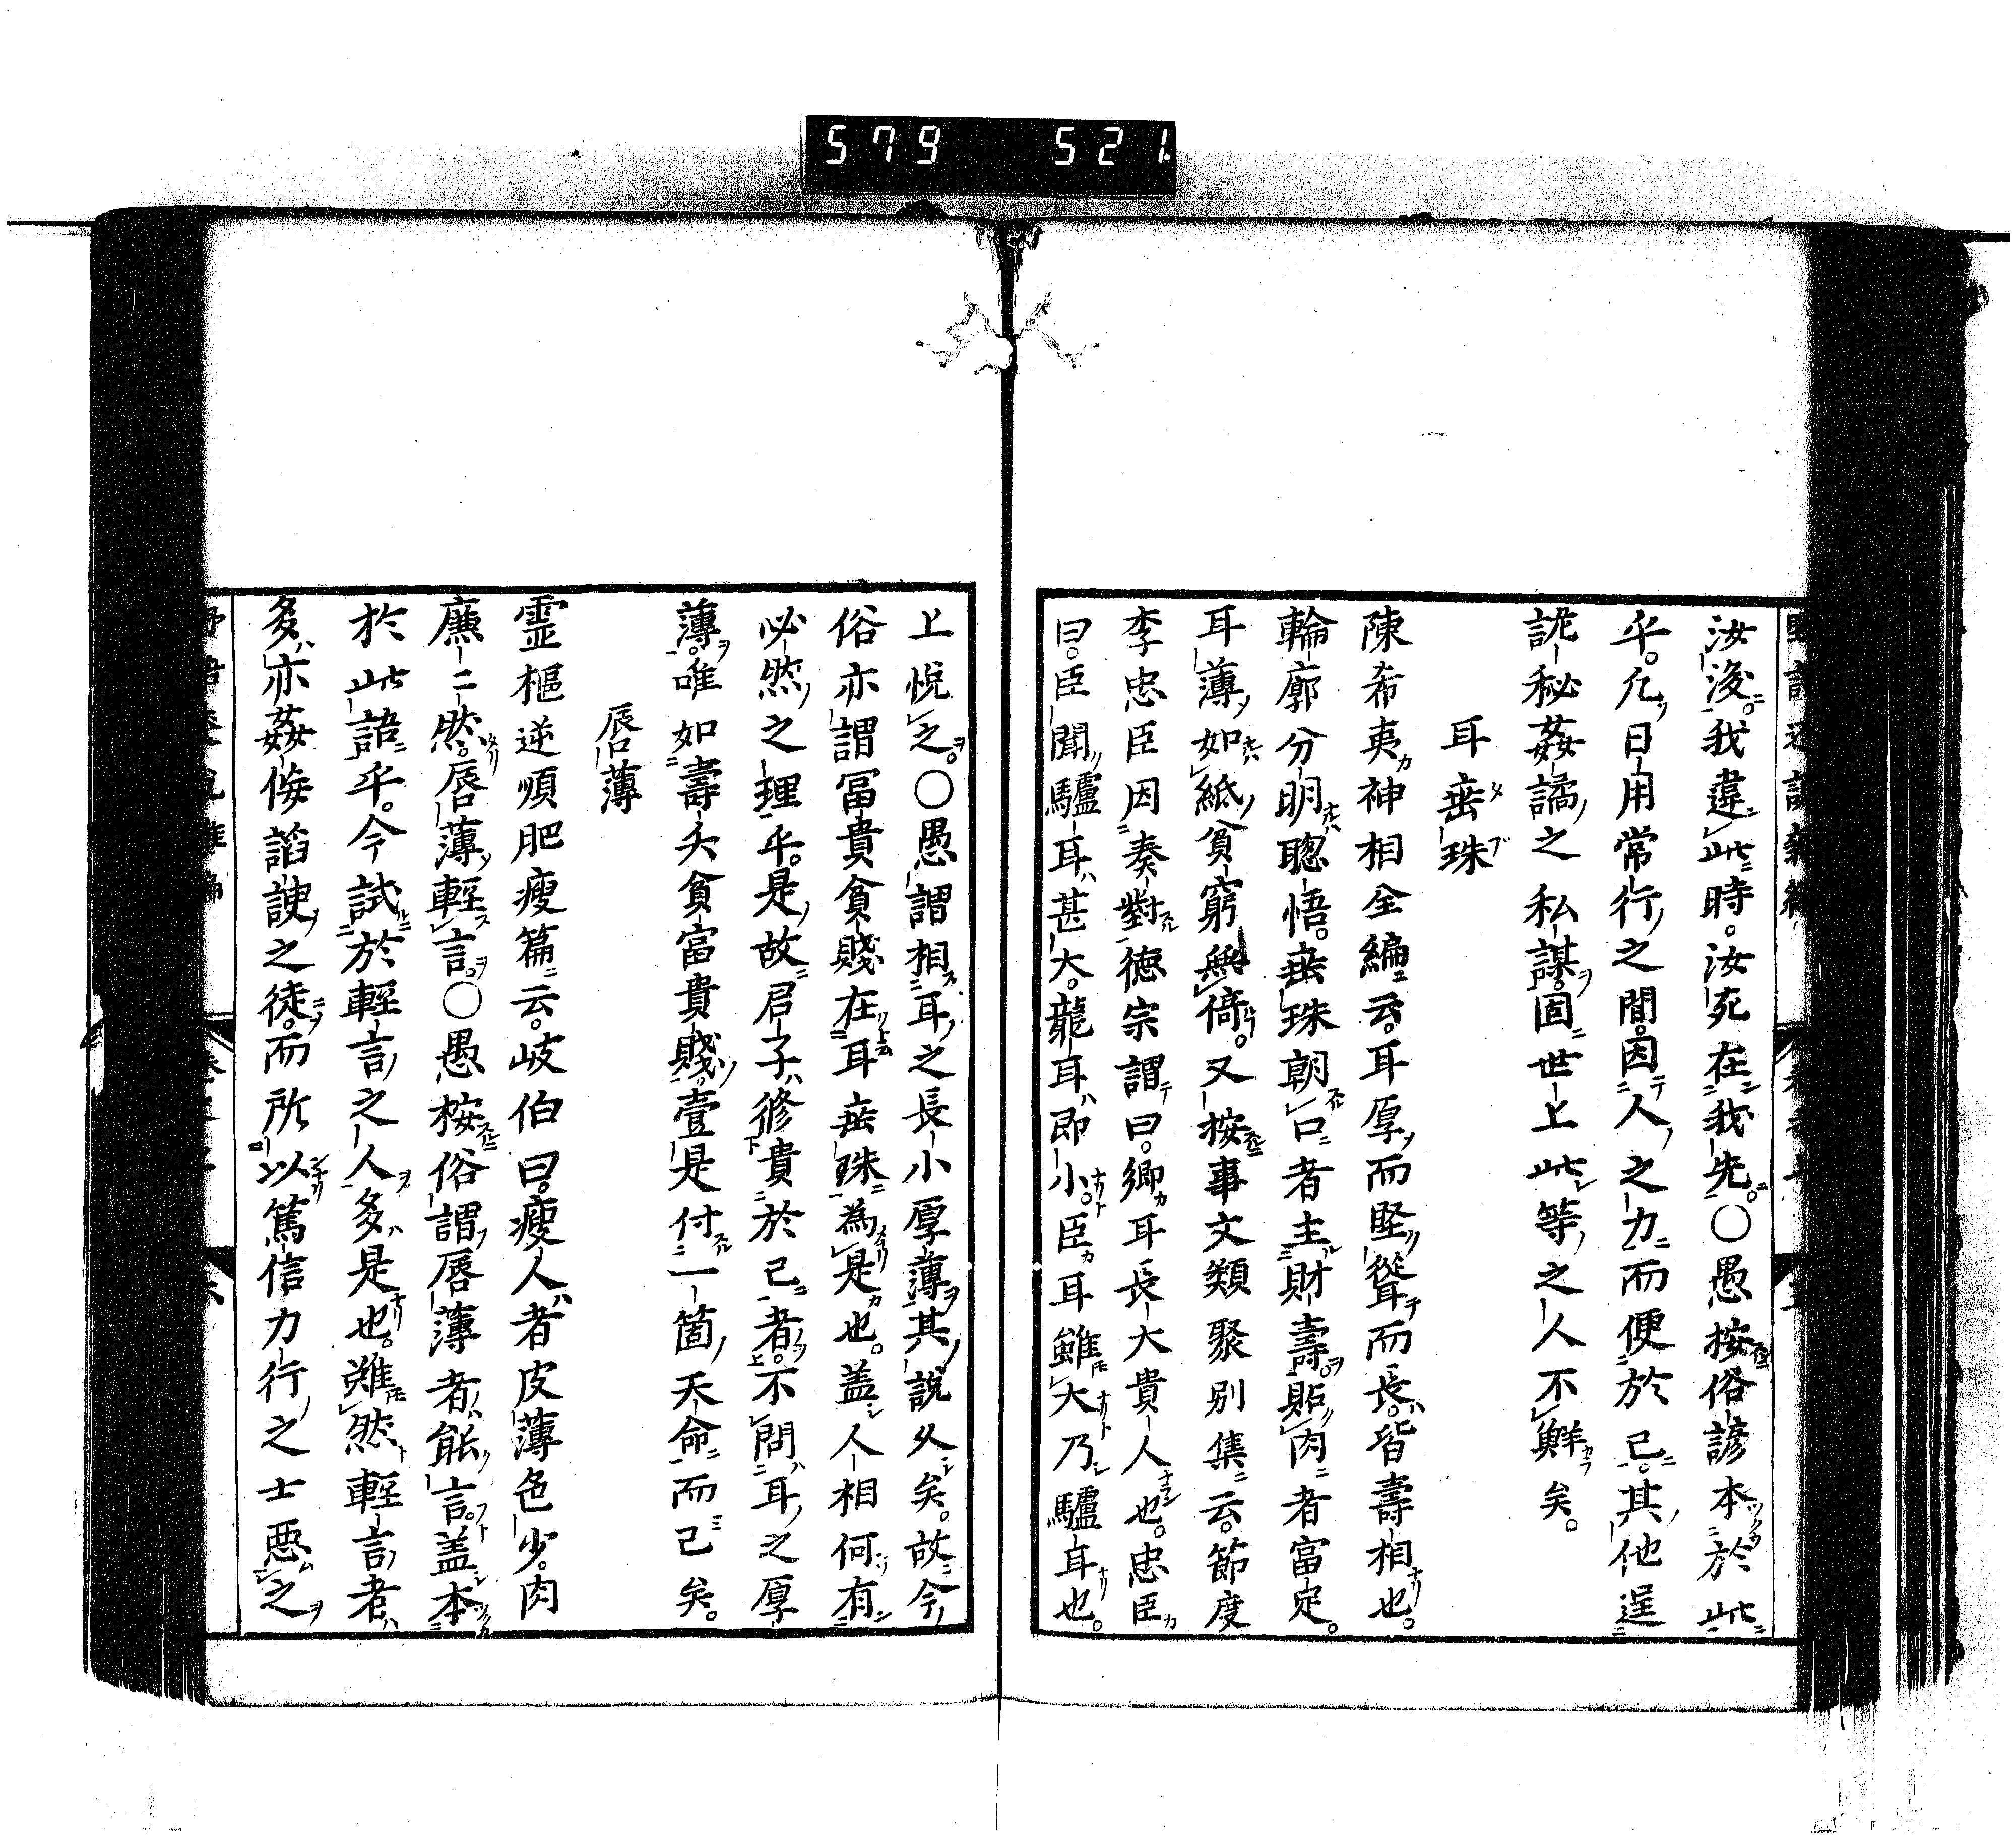 579 521
汝後。我違此時。汝死在我先。〇愚按俗諺本於此
乎。凡日用常行之間。因人之力而便於己。其他逞
詭秘姦譎之私謀。固世上此等之人不鮮矣。
耳垂珠
陳希夷神相全編云。耳厚而堅聳而長。皆壽相也。
輪廓分明聰悟。垂珠朝口者主財壽。貼肉者富定。
耳薄如紙貧窮無倚。又按事文類聚別集云。節度
李忠臣因奏對德宗謂曰。卿耳長大貴人也。忠臣
曰。臣聞驢耳甚大。龍耳即小。臣耳雖大乃驢耳也。
上悅之。〇愚謂相耳之長小厚薄其說久矣。故今
俗亦謂冨貴貧賤在耳垂珠為是也。盖人相何有
必然之理乎。是故君子修貴於己者。不問耳之厚
薄。唯如壽夭貧富貴賤。壹是付一箇天命而已矣。
唇薄
霊樞逆順肥瘦篇云。岐伯曰。瘦人者皮薄色少。肉
廉二然。唇薄輕言。〇愚按俗謂唇薄者能言。盖本
於此語乎。今試於輕言之人多是也。雖然輕言者
多亦姦侫諂諛之徒。而所以篤信力行之士惡之